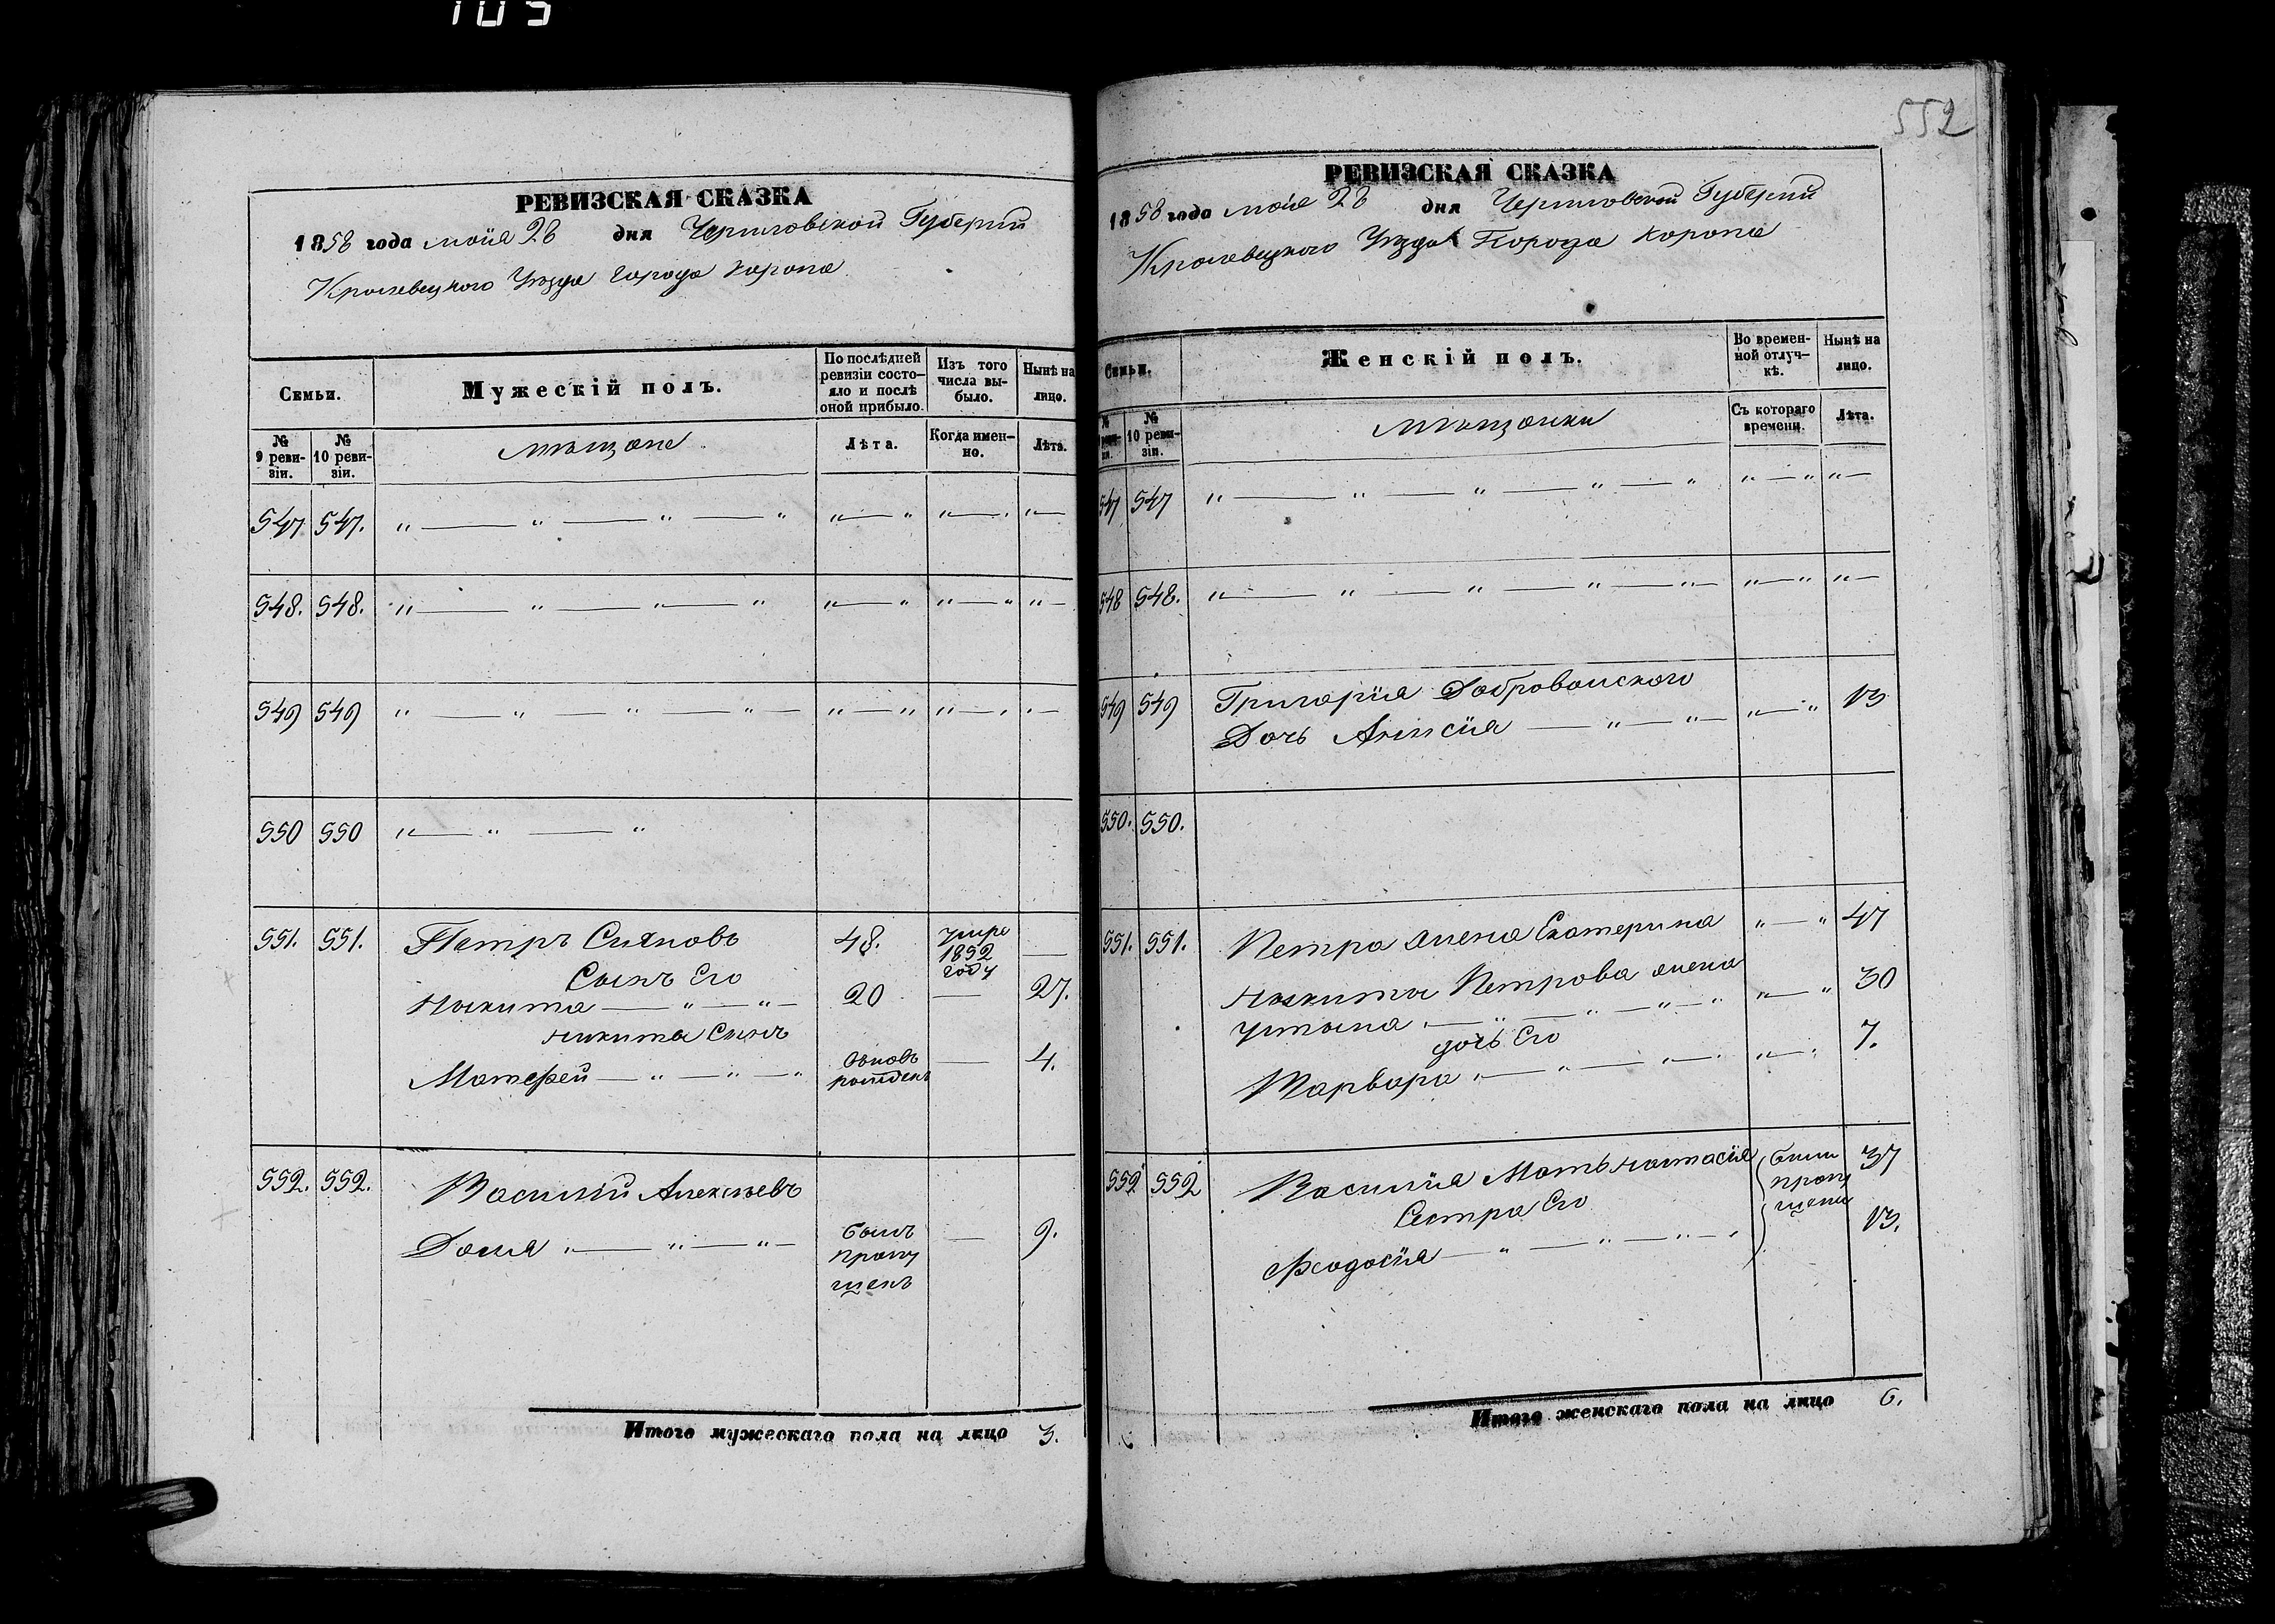 105
552
РЕВИЗСКАЯ СКАЗКА
1858 года мaiя 28 дня Черниговской Губернiи
Кролевецкого Уѣзда города Коропа
Семьи.
Мужескiй полъ.
По послѣдней ревизiи состояло и послѣ оной прибыло.
Изъ того числа выбыло.
Нынѣ на лицо.
№ 9 ревизiи.
№ 10 ревизiи.
мѣщане
Лѣта.
Когда именно.
Лѣта.
547 547. " — " — " — " " — " " — " " —
548. 548. " — " — " — " " — " " — " " —
549 549 " — " — " — " — " — " " — " " —
550 550 " — " — "
551. 551. Петръ Сияновъ 48. умре 1852 году —
Сынъ Его
Никита — " — " — 20 — 27.
Никиты Сынъ
Матфей — " — " — " вновь рожденъ — 4.
552. 552. Василiй Алексѣевъ
Доля " — " — " — былъ пропущенъ — 9.
Итого мужескаго пола на лицо 3.
РЕВИЗСКАЯ СКАЗКА
1858 года маiя 28 дня Черниговской Губернiи
Кролевецкого Уѣзда Города Коропа
Семьи.
Женскiй полъ.
Во временной отлучкѣ.
Нынѣ на лицо.
№ 10 ревизiи.
мѣщанки
Съ котораго времени.
Лѣта.
547 547 " — " — " — " — " " — " " —
548 548. " — " — " — " — " — " — " " —
549 549 Григорiя Добровольского
Дочь Анисiя — " — " — " — " 13
550. 550.
551. 551. Петра жена Екатерина " — " 47
Никиты Петрова жена
Устына " — " — " — " — " " — " 30
дочь Его
Варвара " — " — " — " " — " 7.
552 552 Василiя Мать Настасiя были пропущены 37
Сестра Его
Феодосiя — " — " — " — " 13.
Итого женскаго пола на лицо 6.